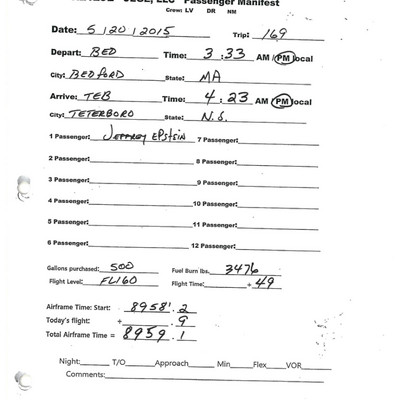 JEGE, LLC - Passenger Manifest
Crew: LV DR NM
Date: 5/20/2015 Trip: 169
Depart: BED Time: 3:33 AM / PM local
City: BEDFORD State: MA
Arrive: TEB Time: 4:23 AM PM local
City: TETERBORO State: N.J.
1 Passenger: JEFFREY EPSTEIN 7 Passenger:
2 Passenger: 8 Passenger:
3 Passenger: 9 Passenger:
4 Passenger: 10 Passenger:
5 Passenger: 11 Passenger:
6 Passenger: 12 Passenger:
Gallons purchased: 500 Fuel Burn lbs. 3476
Flight Level: FL160 Flight Time: + 49
Airframe Time: Start: 8958.2
Today's flight: + .9
Total Airframe Time = 8959.1
Night: T/O Approach Min Flex VOR
Comments: